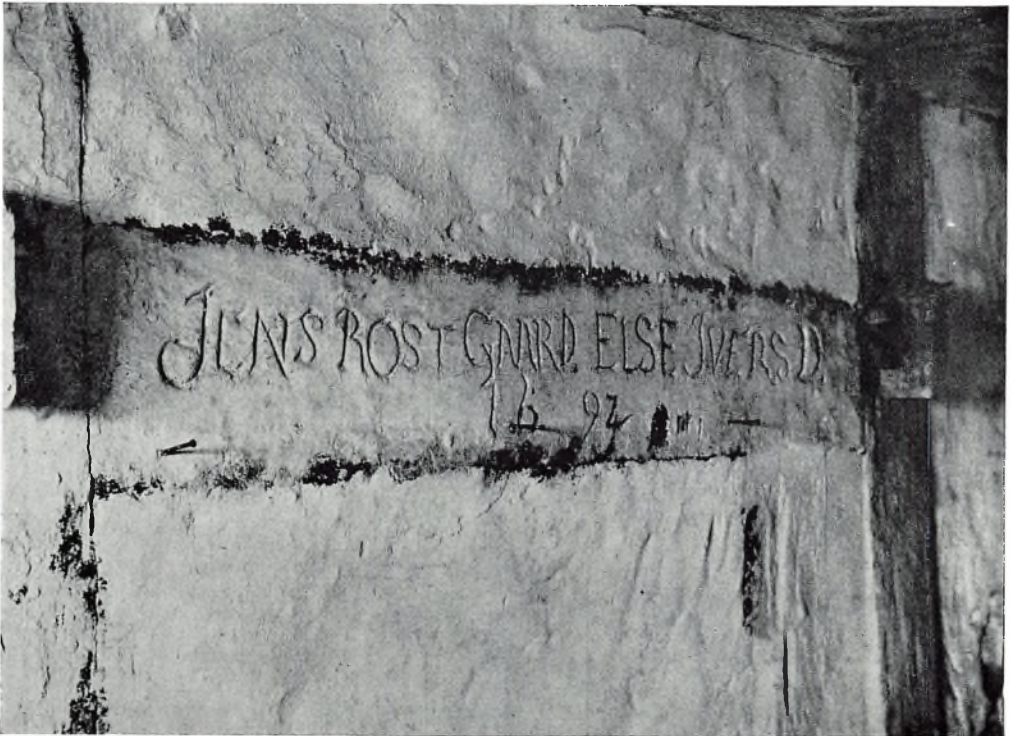 JENS ROSTGAARD. ELSE IVERS D.
1692